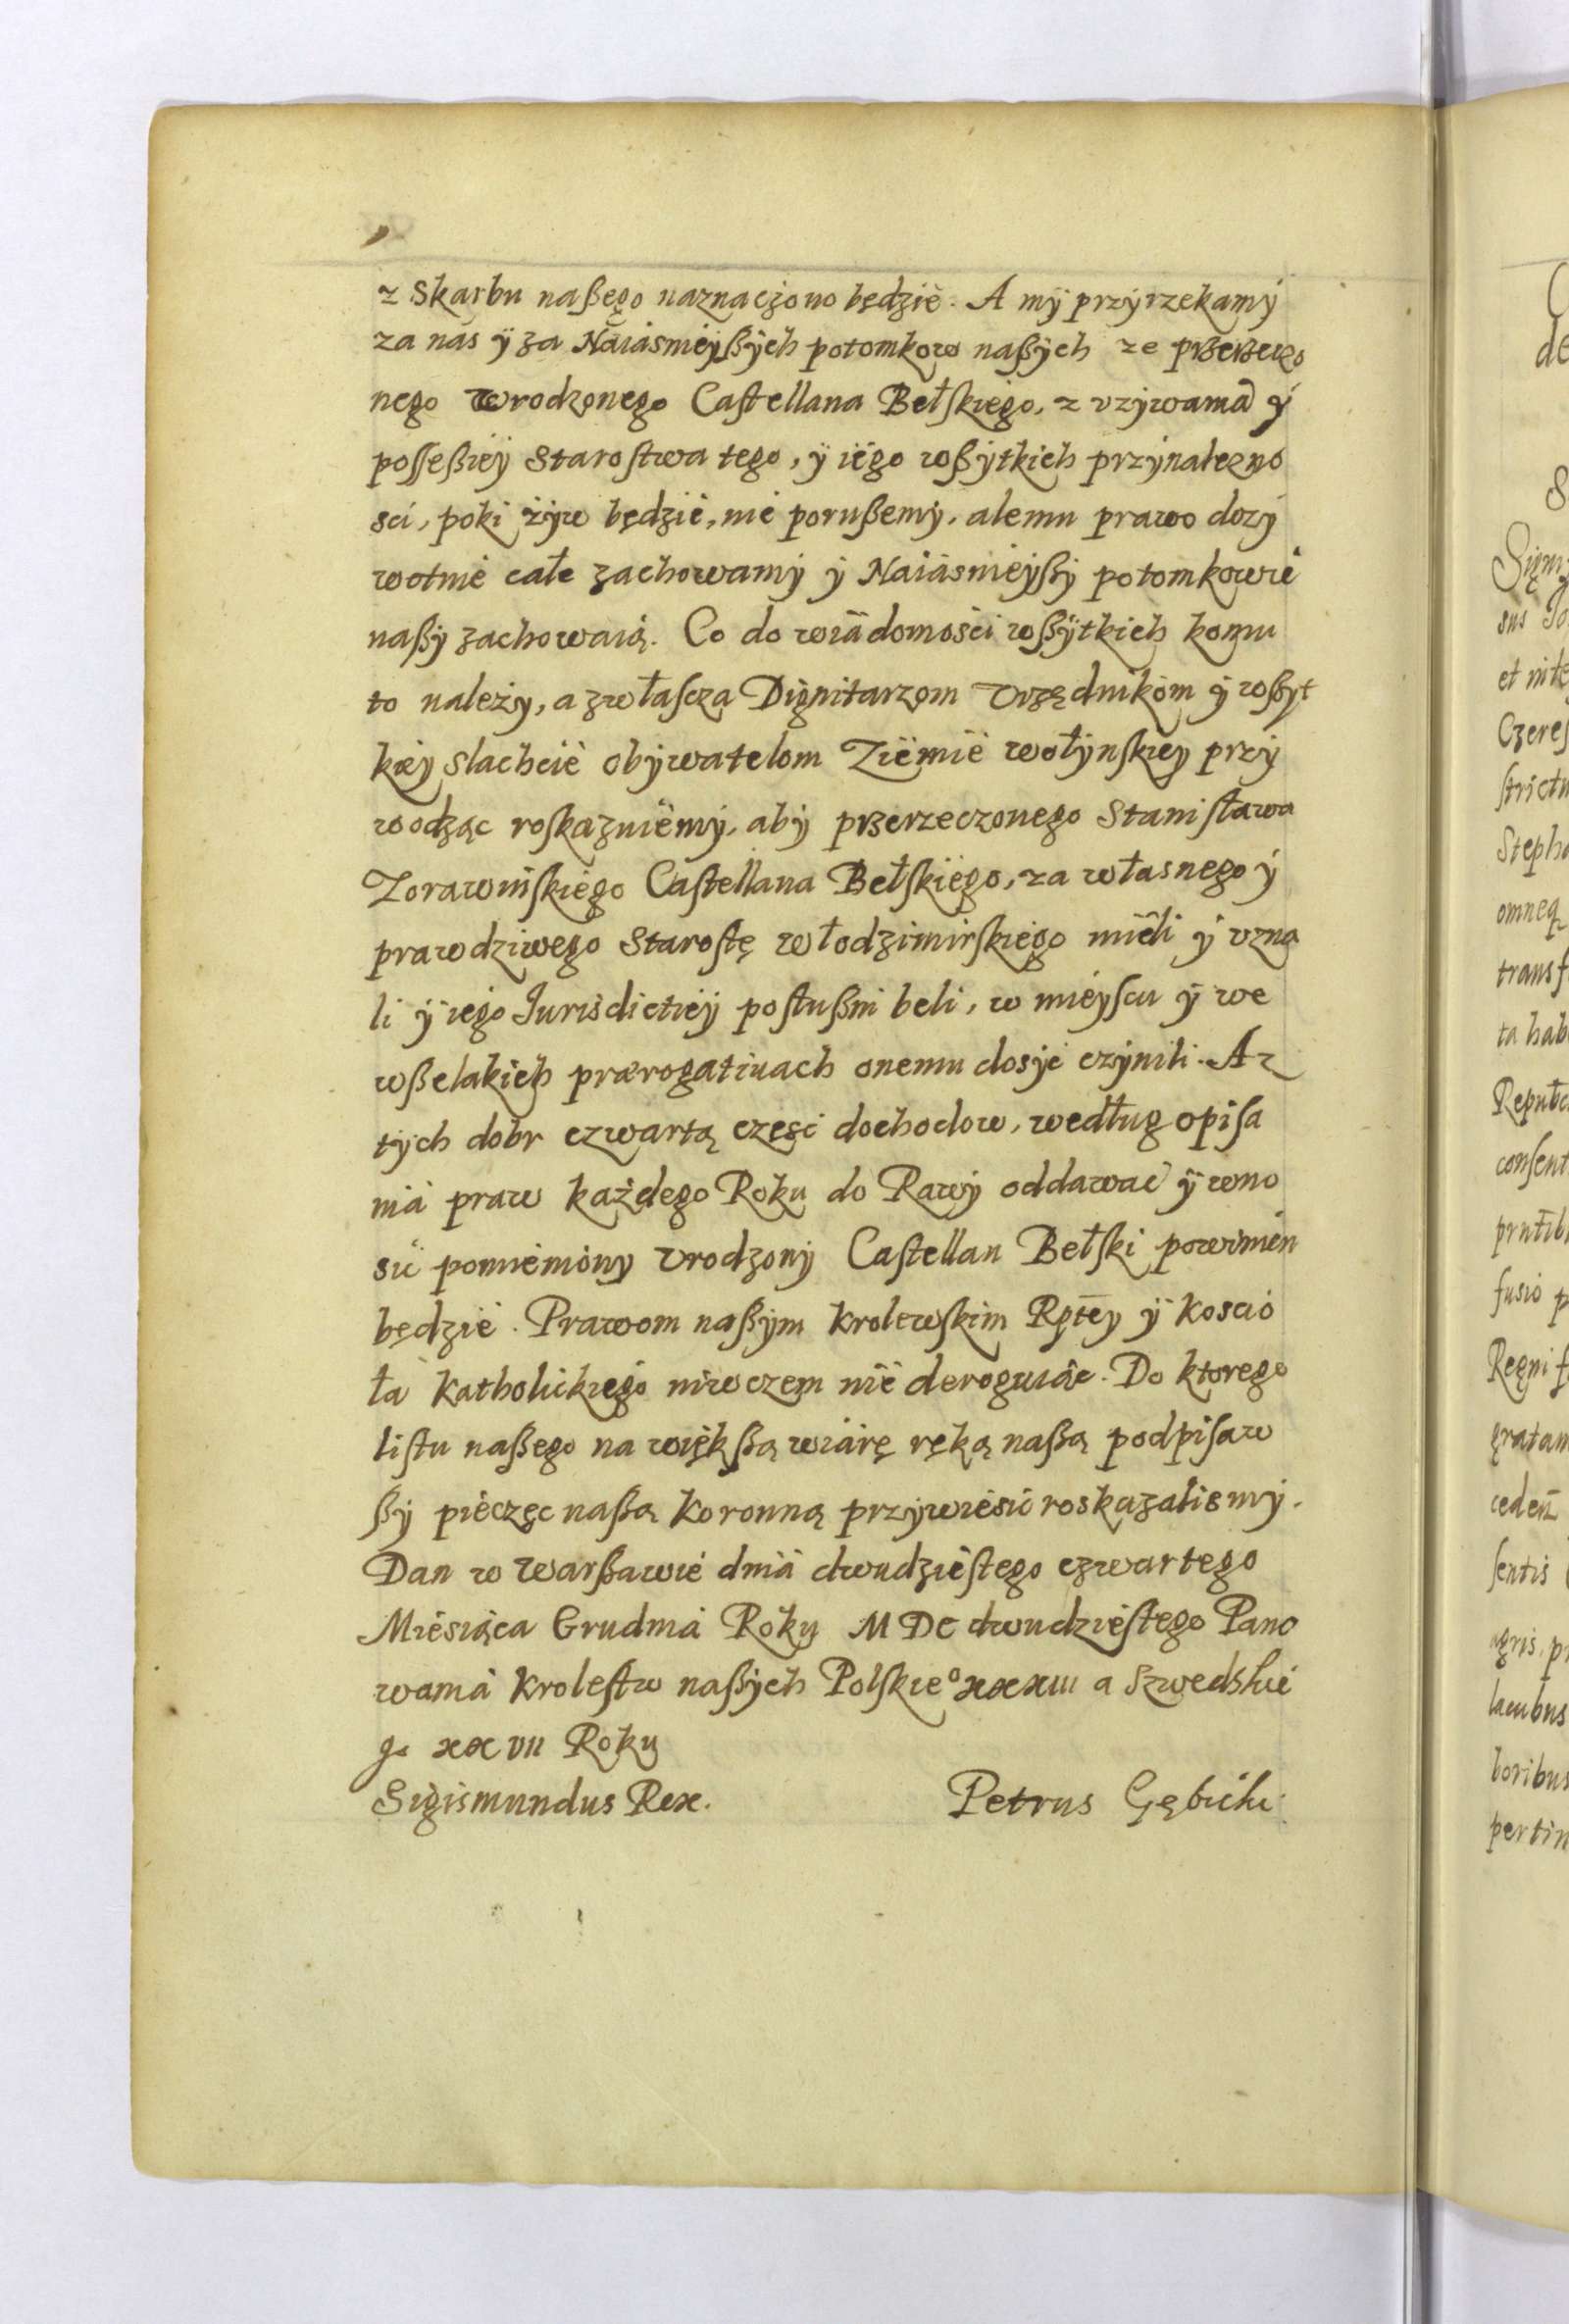 z Skarbu naßego naznaczono będzie. A my przyrzekamy
za nas y za Naiasnieyßych potomkow naßych ze przerzeczo
nego Urodzonego Castellana Bełskiego, z vzywania y
posseßiey Starostwa tego, y iego wßytkich przynalezno
sci, poki żyw będzie, nie porußemy, alemu prawo dozy
wotnie całe zachowamy y Naiasnieyßy potomkowie
naßy zachowaią. Co do wiadomości wßytkich komu
to należy, a zwłascza Dignitarzom Vrzędnikom y wßyt
kiey slachcie obywatelom Ziemie wołynskiey przy
wodząc roskazuiemy, aby przerzeczonego Stanisława
Zorawinskiego Castellana Bełskiego, za własnego y
prawdziwego Starostę włodzimirskiego mieli y vzna
li y iego Jurisdictiey posłußni beli, w mieyscu y we
wßelakich prærogatiuach onemu dosyć czynili. A z
tych dobr czwartą częsc dochodow, według opisa
nia praw każdego Roku do Rawy oddawać y wno
sic pomieniony Vrodzony Castellan Bełski powinien
będzie. Prawom naßym krolewskim Rptey y koscio
ła Katholickiego niwczem nie deroguiąc. Do ktorego
listu naßego na więkßą wiarę ręką naßą podpisaw
ßy pieczęc naßą koronną przywiesic roskazalismy.
Dan w Warßawie dnia dwudziestego czwartego
Miesiąca Grudnia Roku MDC dwudziestego Pano
wania krolestw naßych Polskie° xxxiii a Szwedskie
go xxvii Roku
Sigismundus Rex. Petrus Gębicki.